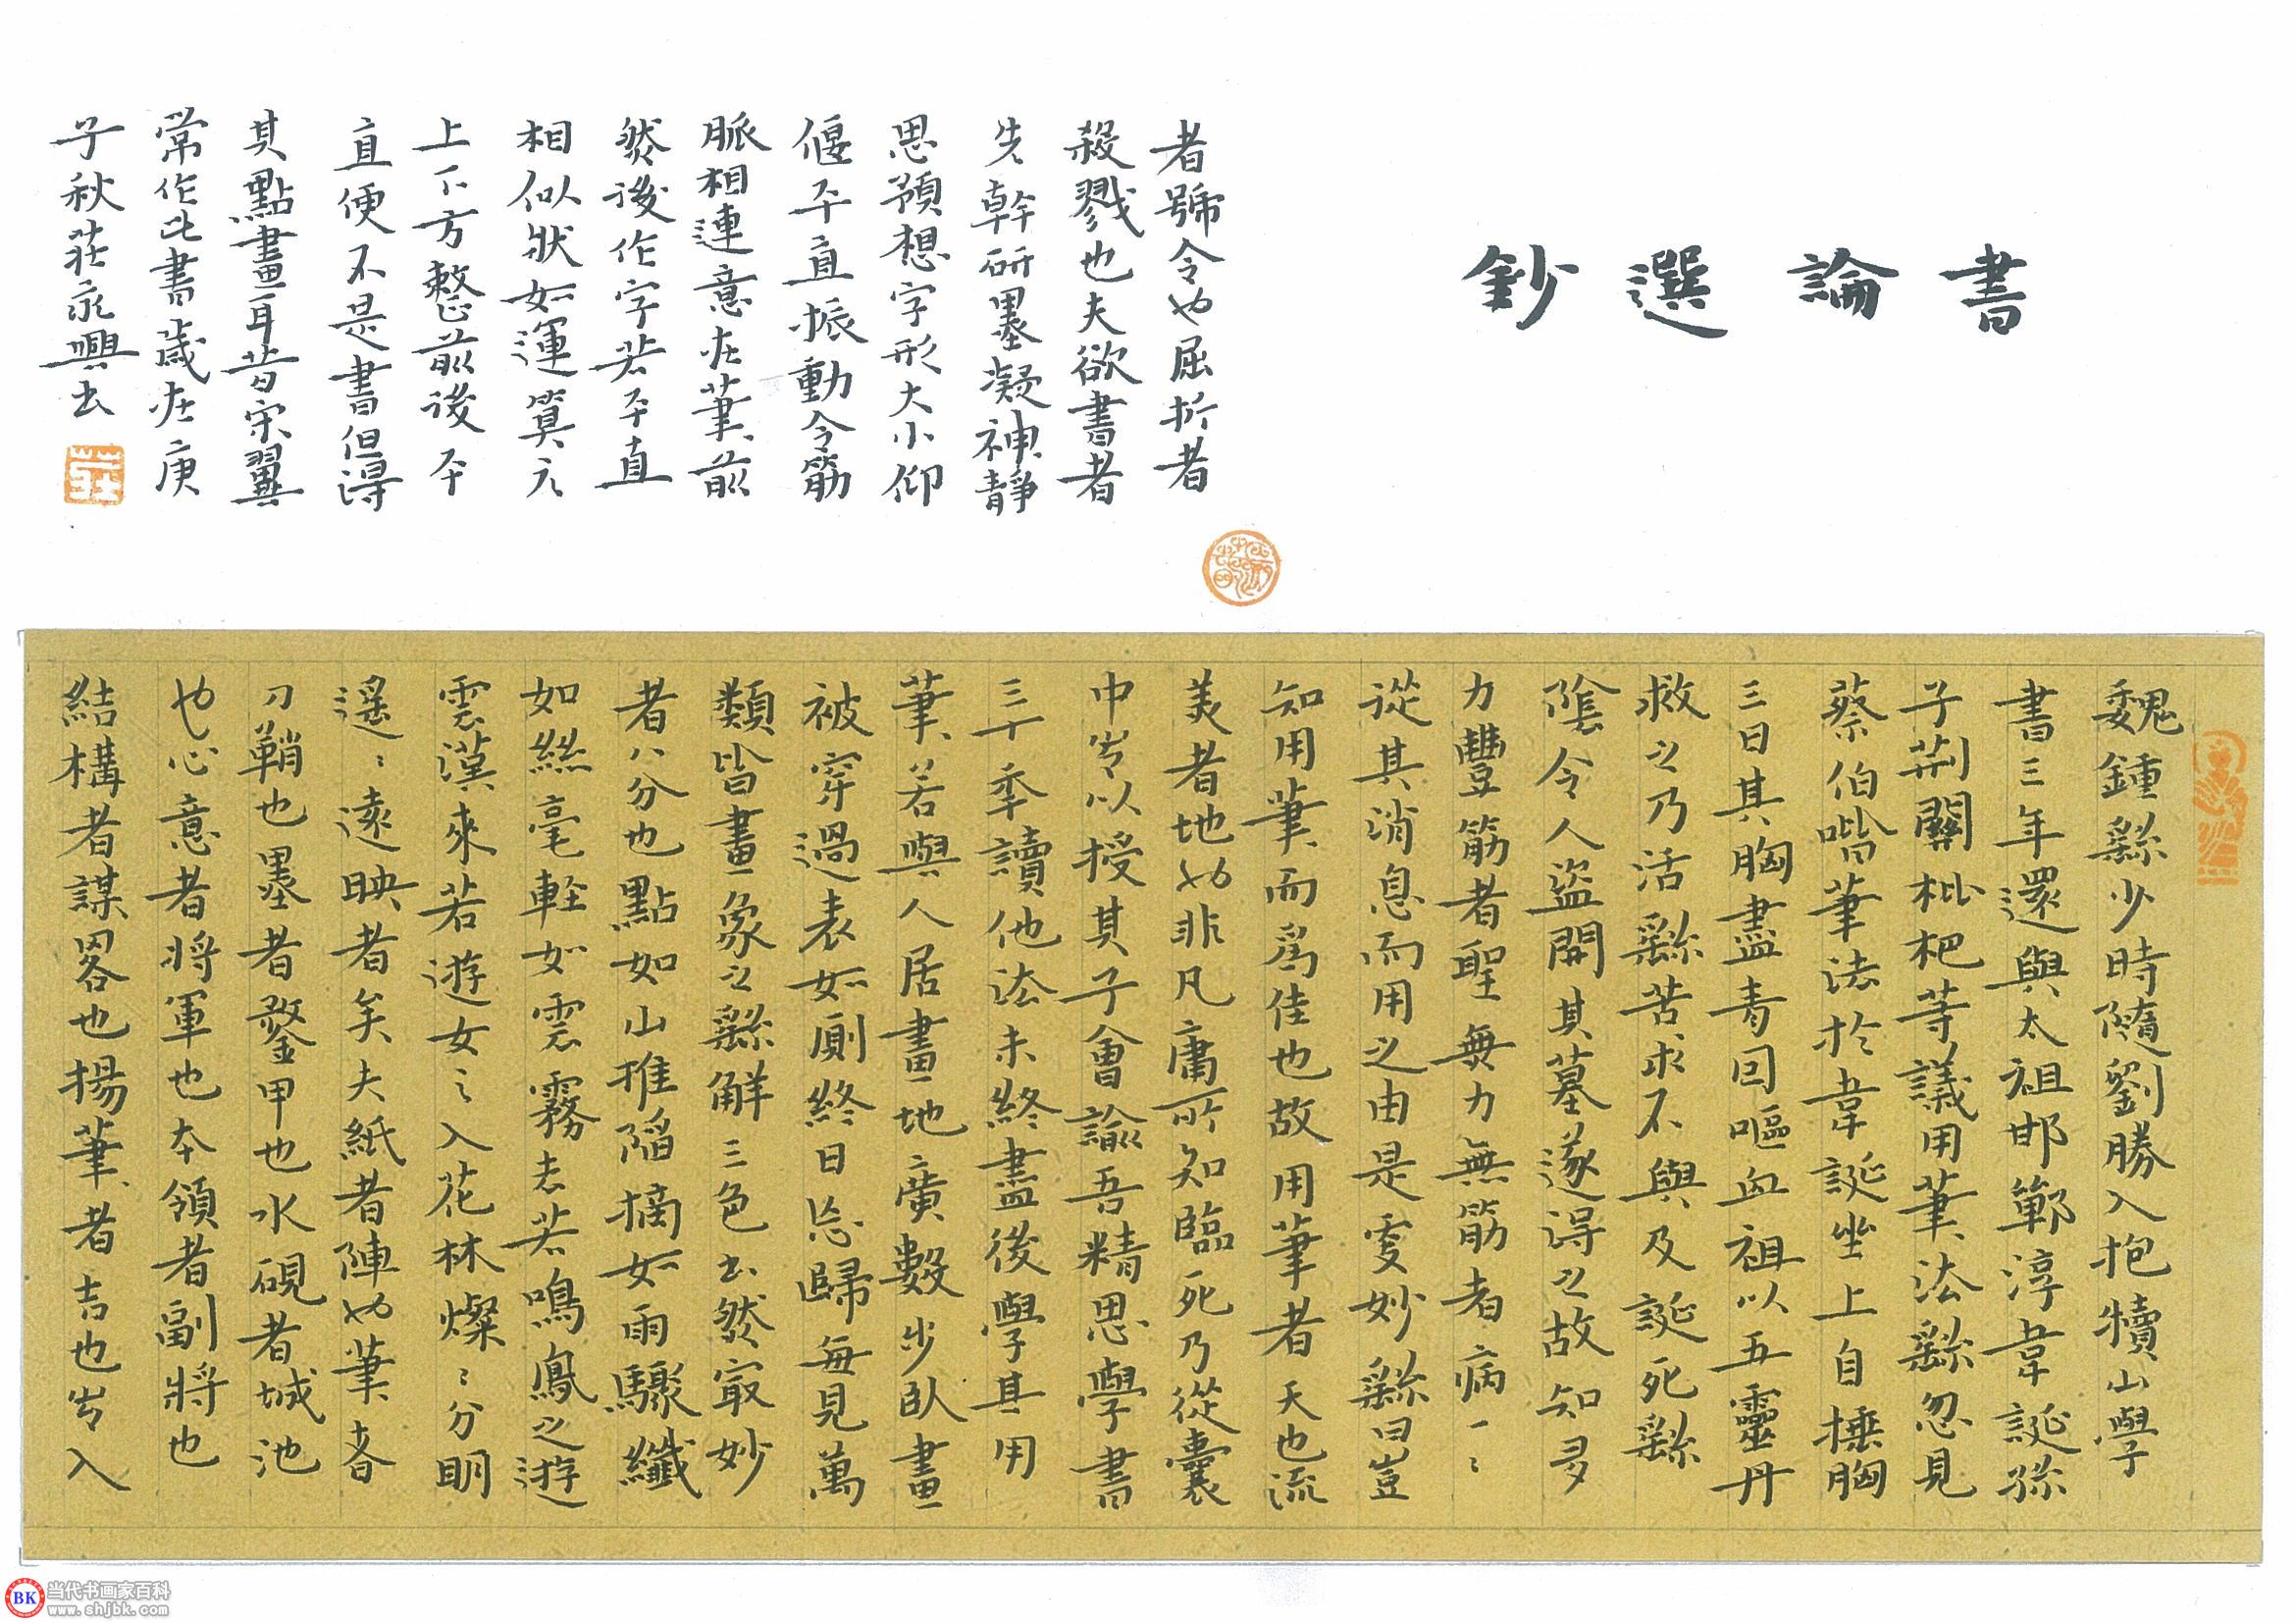 書論選鈔
魏鍾繇少時隨劉勝入抱犢山學
書三年還與太祖邯鄲淳韋誕孫
子荊關枇杷等議用筆法繇忽見
蔡伯喈筆法於韋誕坐上自捶胸
三日其胸盡青因嘔血祖以五靈丹
救之乃活繇苦求不與及誕死繇
陰令人盜開其墓遂得之故知多
力豐筋者聖無力無筋者病一〻
從其消息而用之由是更妙繇曰豈
知用筆而爲佳也故用筆者天也流
美者地也非凡庸所知臨死乃從囊
中出以授其子會諭吾精思學書
三十季讀他法未終盡後學其用
筆若與人居畫地廣數步臥畫
被穿過表如廁終日忘歸每見萬
類皆畫象之繇解三色書然最妙
者八分也點如山摧陷摘如雨驟纖
如絲毫輕如雲霧去若鳴鳳之遊
雲漢來若遊女之入花林燦〻分明
遥〻遠映者矣夫紙者陣也筆者
刀鞘也墨者鍪甲也水硯者城池
也心意者將軍也本領者副將也
結構者謀畧也揚筆者吉也出入
者號令也屈折者
殺戮也夫欲書者
先幹研墨凝神靜
思預想字形大小仰
偃平直振動令筋
脈相連意在筆前
然後作字若平直
相似狀如運算元
上下方整前後平
直便不是書但得
其點畫耳昔宋翼
常作此書歲在庚
子秋莊永興書
當代书画家百科
www.shjbk.com
BK